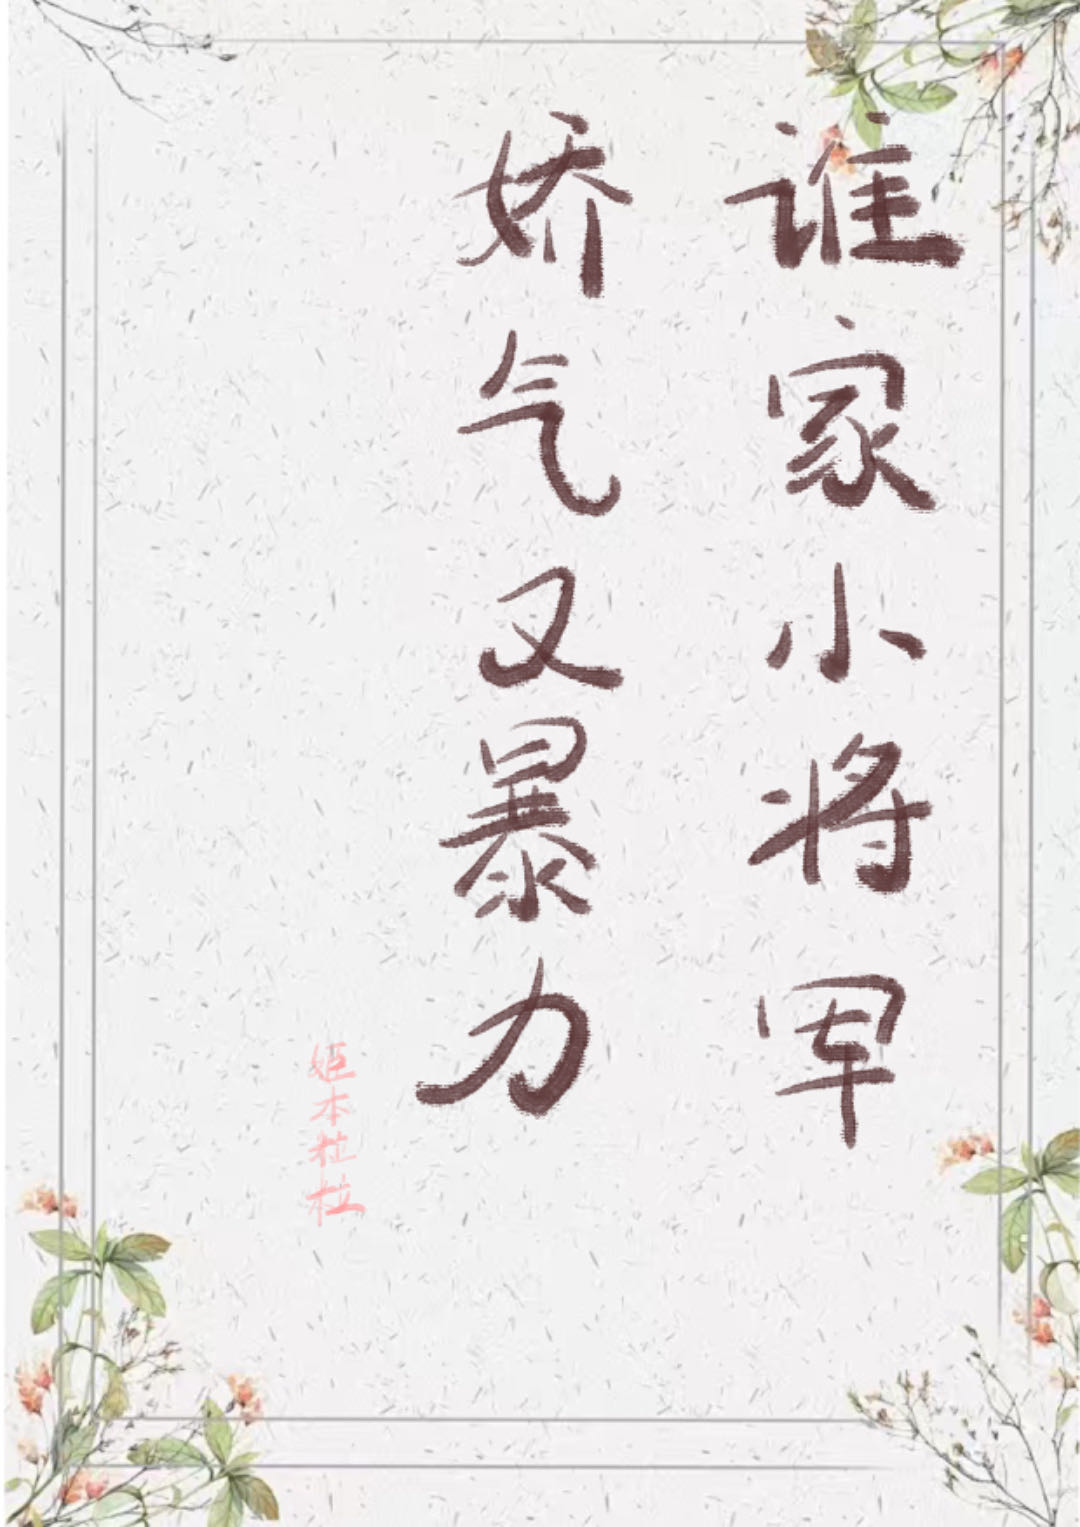 谁家小将军
娇气又暴力
姬本粒粒